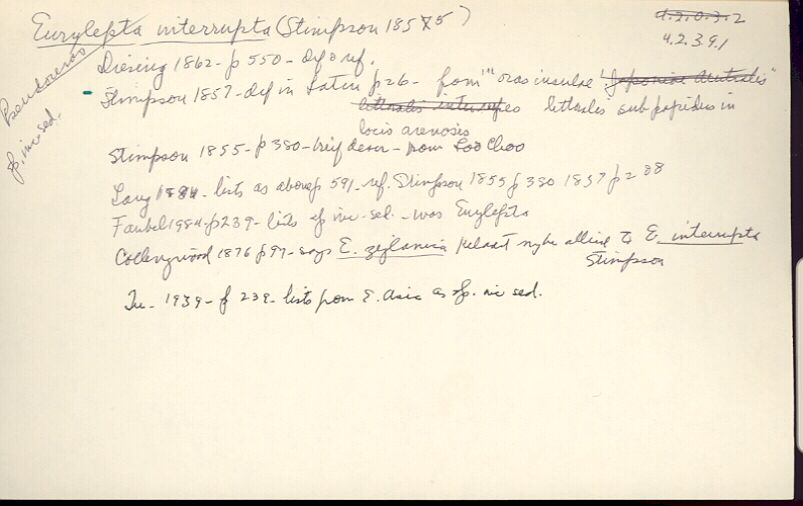 4.2.0.3.2
4.2.3.9.1
Eurylepta interrupta (Stimpson 1855)
Pseudoceros
sp. inc. sed.
Diesing 1862 - p 550 - def & ref.
- Stimpson 1857 - def in Latin p 26 - from "" oras insulae "Japoniae Australis"
littoralis littoralis sub lapidibus in
locis arenosis
Stimpson 1855 - p 380 - brief descr - from Loo Choo
Lang 1884 - lists as above p 591 - ref. Stimpson 1855 p 380 1857 p 2
Faubel 1984 - p 239 - lists sp inc. sed. - was Eurylepta
Collingwood 1876 p 97 - says E. zeylanica Kelaart allied to E. interrupta
Stimpson
1939 - p 239 - lists from E. Asia as sp. inc sed.